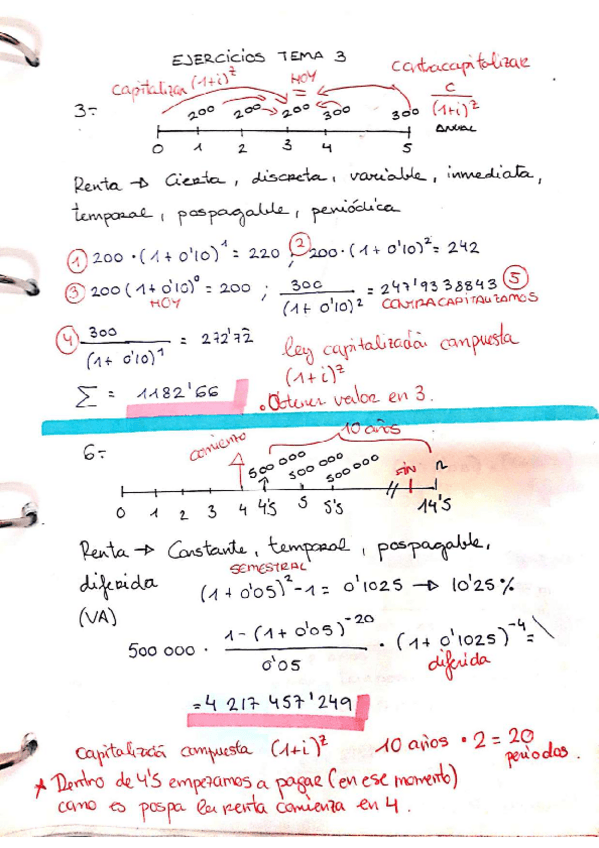 EJERCICIOS TEMA 3
Capitalizar (1+i)^z
HOY
=
contracapitalizar
C
(1+i)^z
3-
200 200 200 300 300
ANUAL
0 1 2 3 4 5
Renta → Cierta, discreta, variable, inmediata,
temporal, pospagable, periódica
① 200 · (1 + 0'10)^1 = 220 ; ② 200 · (1 + 0'10)^2 = 242
③ 200 (1 + 0'10)^0 = 200 ; 300 / (1+ 0'10)^2 = 247'9338843 ⑤
HOY
CONTRACAPITALIZAMOS
④ 300 / (1+ 0'10)^1 = 272'72
ley capitalización compuesta
(1+i)^z
Σ = 1182'66
• Obtener valor en 3.
6-
comienzo
10 años
500 000 500 000 500 000
FIN
n
0 1 2 3 4 4'5 5 5'5 // 14'5
Renta → Constante, temporal, pospagable,
SEMESTRAL
diferida (1 + 0'05)^2 - 1 = 0'1025 → 10'25 %
(VA)
500 000 · 1 - (1 + 0'05)^-20 / 0'05 · (1 + 0'1025)^-4 =
diferida
= 4 217 457'249
Capitalización compuesta (1+i)^z 10 años · 2 = 20
periodos.
* Dentro de 4'5 empezamos a pagar (en ese momento)
como es pospa la renta comienza en 4.